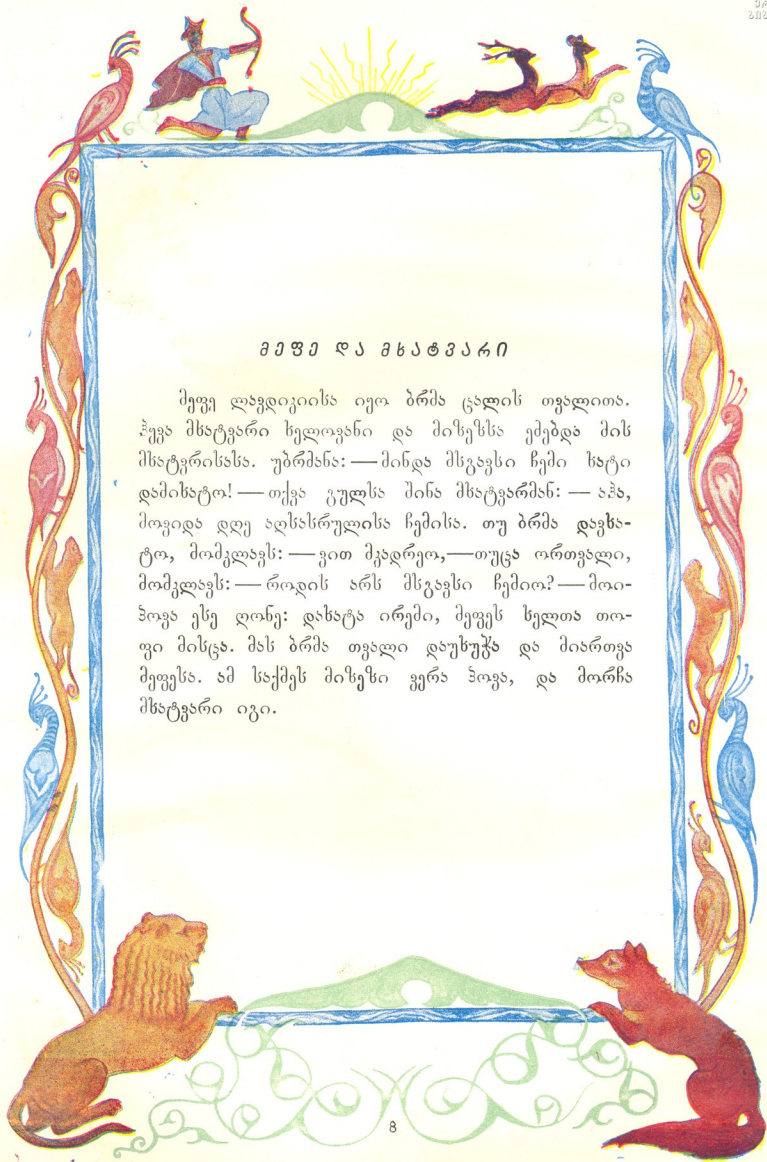 მეფე და მხატვარი
მეფე ლავდიკიისა იყო ბრმა ცალის თვალითა.
ჰყვა მხატვარი ხელოვანი და მიზეზსა ეძებდა მის
მხატვრისასა. უბრძანა: — მინდა მსგავსი ჩემი ხატი
დამიხატო! — თქვა გულსა შინა მხატვარმან: — აჰა,
მოვიდა დღე აღსასრულისა ჩემისა. თუ ბრმა დავხა-
ტო, მომკლავს: — ვით მკადრეო, — თუცა ორთვალი,
მომკლავს: — როდის არს მსგავსი ჩემიო? — მოი-
პოვა ესე ღონე: დახატა ირემი, მეფეს ხელთა თო-
ფი მისცა. მას ბრმა თვალი დაუხუჭა და მიართვა
მეფესა. ამ საქმეს მიზეზი ვერა პოვა, და მორჩა
მხატვარი იგი.
8